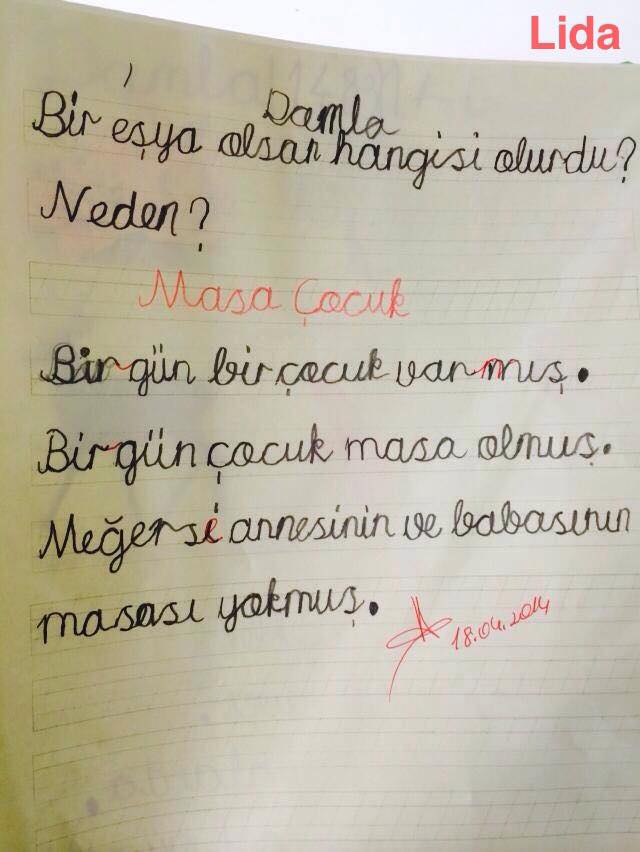 Lida
Damla
Bir eşya olsan hangisi olurdu?
Neden?
Masa Çocuk
Bir gün bir çocuk varmış.
Bir gün çocuk masa olmuş.
Meğerse annesinin ve babasının
masası yokmuş.
18.04.2014